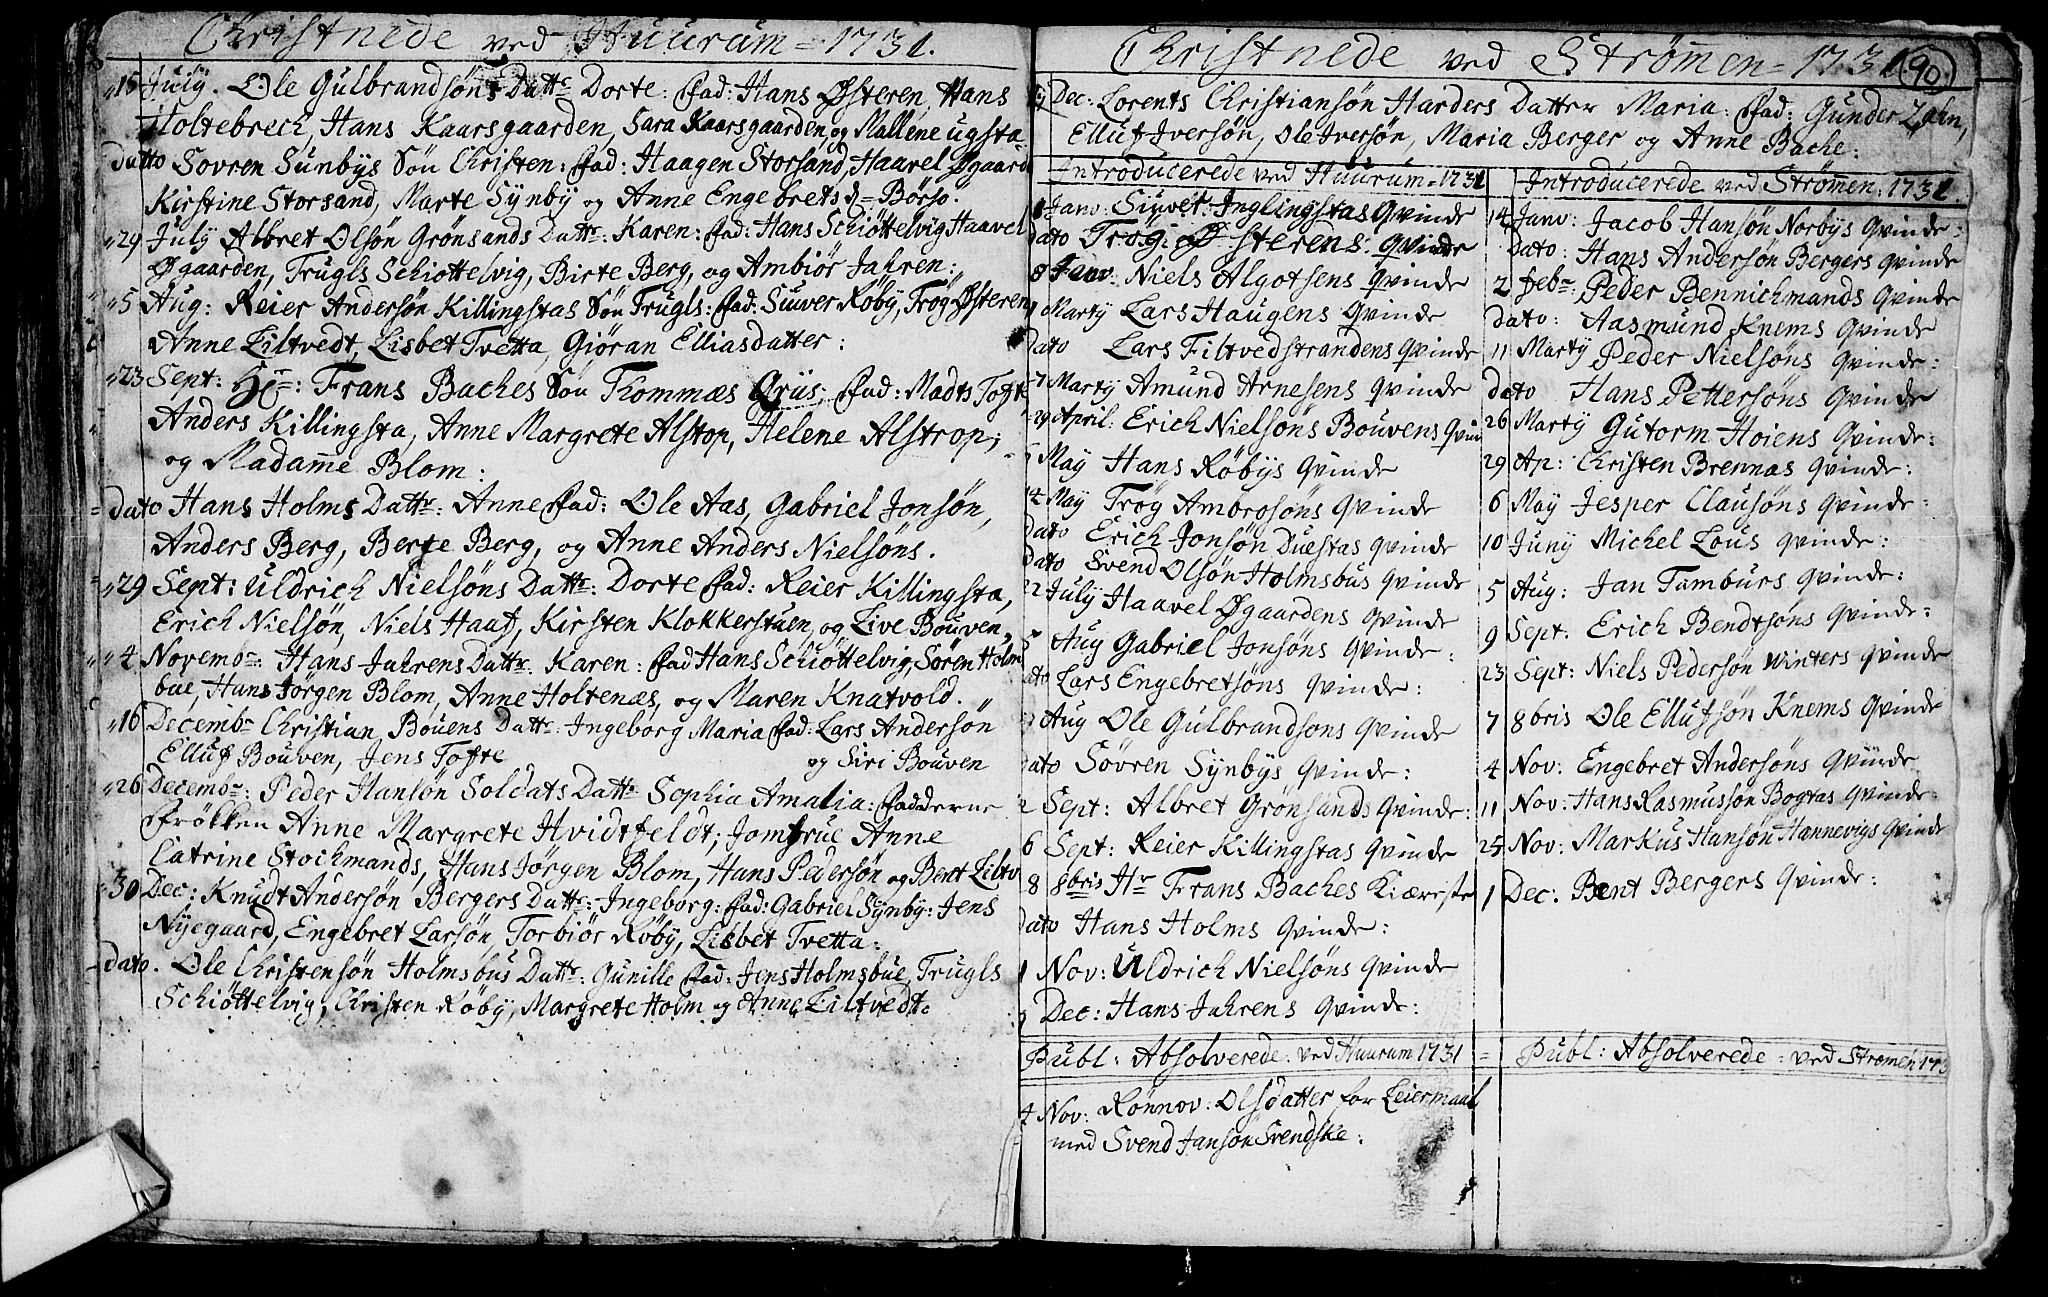 Christnede ved Huurum = 1731.
15 July. Ole Gulbrandsøns Dattr Dorte: Fad: Hans Østeren, Hans
Holtebrech, Hans Kaarsgaarden, Sara Kaarsgaarden, og Mallene ugsta
Datto Sovren Sunbys Søn Christen: Fad: Haagen Storsand, Haavel Øgaard
Kirstine Storsand, Marte Synby og Anne Engebretsd = Børso.
29 July Albret Olsøn Grønsands Dattr: Karen: Fad: Hans Schiøttelvig Haavel
Øgaarden, Trugls Schiøttelvig, Birte Berg, og Ambiør Jahren:
5 Aug: Reier Andersøn Killingstas Søn Trugls: Fad: Suuver Røby, Trög Østeren
Anne Liltvedt, Lisbet Tvetta, Giøran Elliasdatter:
23 Sept: Hr: Frans Baches Søn Thommæs Qriis: Fad: Madts Tofte
Anders Killingsta, Anne Margrete Alstop, Helene Alstrop;
og Madame Blom:
dato Hans Holms Dattr: Anne Fad: Ole Aas, Gabriel Jonsøn,
Anders Berg, Berte Berg, og Anne Anders Nielsøns.
29 Sept: Uldrich Nielsøns Dattr: Dorte Fad: Reier Killingsta,
Erich Nielsøn, Niels Haaf, Kirsten Klokkerstuen, og Live Bouven,
4 Novembr: Hans Jahrens Dattr. Karen: Fad Hans Schiøttelvig, Søren Holm
bue, Hans Jørgen Blom, Anne Holtenæs, og Maren Knatvold.
16 Decembr Christian Bouens Dattr: Ingeborg Maria Fad: Lars Andersøn
Elluf Bouven, Jens Tofte og Siri Bouven
26 Decembr: Peder Hansøn Soldats Dattr Sophia Amalia: Fadderne
Frøkken Anne Margrete Hvidtfeldt; Jomfrue Anne
Catrine Stochmands, Hans Jørgen Blom, Hans Pedersøn og Bent Liltv
30 Dec: Knudt Andersøn Bergers Dattr: Ingeborg: Fad: Gabriel Synby: Jens
Nyegaard, Engebret Larsøn, Torbiør Røby, Lisbet Tvetta:
dato. Ole Christensøn Holmsbus Dattr: Gunille Fad: Jens Holmsbue, Trugls
Schiøttelvig, Christen Røby, Margrete Holm og Anne Liltvedt.
Christnede ved Strømen = 1731 90
Dec: Lorents Christiansøn Harders Datter Maria: Fad: Gunder Zahn,
Elluf Iversøn, Ole Iversøn, Maria Berger og Anne Bache:
Introducerede ved Huurum = 1731
Janv: Siuvet Inglingstas Qvinde
dato Trog: Østerens: qvinde
8 Janv: Niels Algotsens qvinde
Marty Lars Haugens Qvinde
dato Lars Filtvedstrandens Qvinde
7 Marty Amund Arnesens qvinde
29 April: Erich Nielsøns Bouvens Qvin
May Hans Røbys Qvinde
14 May Trøg Ambrosøns Qvinde
dato Erich Jonsøn Duestas qvinde
dato Svend Olsøn Holmsbus Qvinde
22 July Haavel Øgaardens qvinde
5 Aug Gabriel Jonsøns Qvinde:
dato Lars Engebretsøns qvinde:
Aug Ole Gulbrandsons qvinde
dato Søvren Synbys Qvinde:
2 Sept: Albret Grønsands Qvinde:
6 Sept: Reier Killingstas Qvinde
8 8bris Hr Frans Baches Kiæriste
dato Hans Holms Qvinde:
1 Nov: Uldrich Nielsøns Qvinde
Dec: Hans Jahrens Qvinde:
Introducerede ved Strømen: 1731.
14 Janv: Jacob Hansøn Norbys Qvinde:
Dato: Hans Andersøn Bergers Qvinde
2 Febr: Peder Bennichmands Qvinde
dato: Aasmund Knems Qvinde
11 Marty Peder Nielsøns Qvinde:
dato Hans Pettersøns Qvinde
26 Marty Gutorm Hoiens Qvinde:
29 Ap: Christen Brennæs Qvinde:
6 May Jesper Clausøns Qvinde:
10 Juny Michel Lous qvinde:
5 Aug: Jan Tamburs Qvinde:
9 Sept: Erich Bendtsøns Qvinde:
23 Sept: Niels Pedersøn Winters Qvinde
7 8bris Ole Ellufsøn Knems Qvinde
4 Nov: Engebret Andersøns Qvinde
11 Nov: Hans Rasmussøn Bogtas Qvinde
25 Nov: Markus Hansøn Hannevigs Qvinde
1 Dec: Bent Bergers Qvinde:
Publ: Absolverede: ved Huurum 1731 =
4 Nov: Rønnov: Olsdatter for Leiermaal
med Svend Jansøn Svendske:
Publ: Absolverede: ved Strømen 173